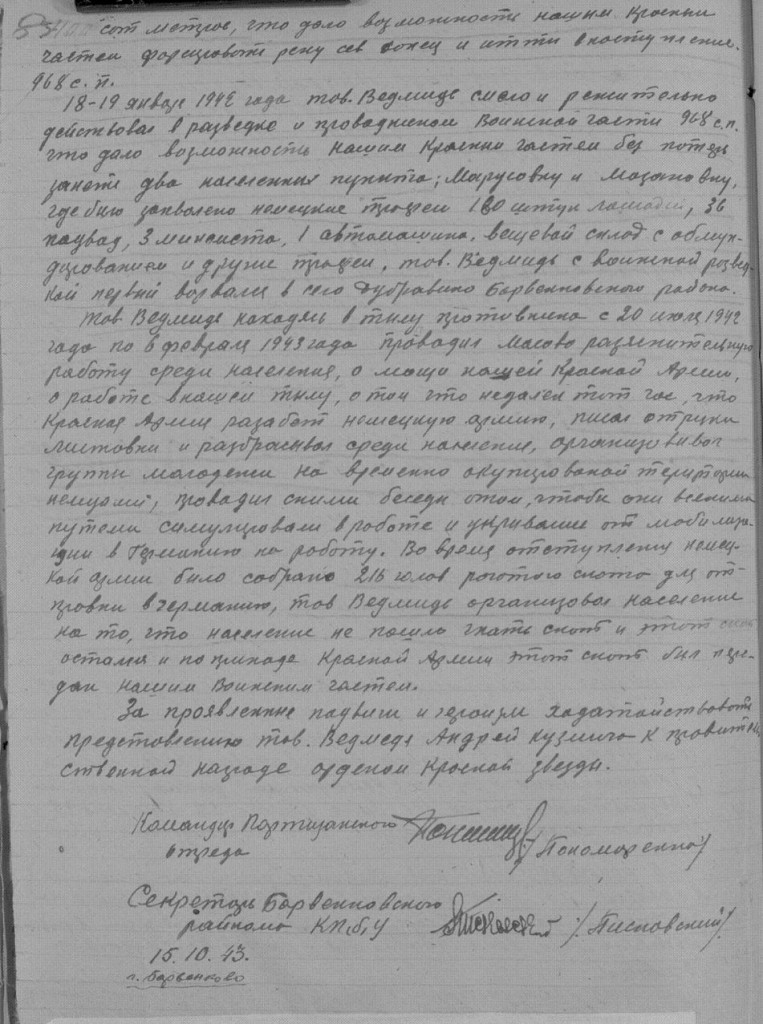 сот метров, что дало возможность нашим Красным
частям форсировать реку сев донец и итти в наступление.
968 с.п.
18-19 января 1942 года тов. Ведмидь смело и решительно
действовал в разведке и проводником Воинской части 968 с.п.
что дало возможность нашим Красным частям без потерь
занять два населенных пункта; Марусовку и Мазановку,
где було захвалено немецкие трофеи 180 штук лошадей, 36
подвод, 3 минамиота, 1 автомашина, вещевой склад с обмун-
дированием и други трофеи, тов. Ведмидь с воинской развед-
кой первый ворвался в село Дубравино Барвенковского района.
тов Ведмидь находясь в тылу противника с 20 июля 1942
года по 6 февраля 1943 года проводил масово разяснительную
работу среди населения, о мощи нашей Красной Армии,
о работе в нашем тылу, о том что недалек тот час, что
Красная Армия разабьёт немецкую армию, писал от руки
листовки и разбрасывал среди населения, организовивал
группы молодежи на временно окупированой територии
немцами, проводил с ними беседы о том, чтобы они всякими
путями симулировали в работе и укривались от мобилиза-
ции в Германию на работу. Во время отступления немец-
кой армии било собрано 216 голов рогатого скота для от-
правки в Германию, тов Ведмидь организовал население
на то, что население не пошло гнать скот и этот скот
остался и по приходе Красной Армии этот скот был пере-
дан нашим Воинским частям.
За проявленные подвиги и героизм ходатайствовать
представлению тов. Ведмедя Андрей Кузмича к правитель-
ственной награде орденом Красной звезды.
Командир Партизанского
отряда /Пономаренко/
Секретарь Барвенковского
райкома КП/б/У /Писковский/.
15.10.43.
г. Барвенково